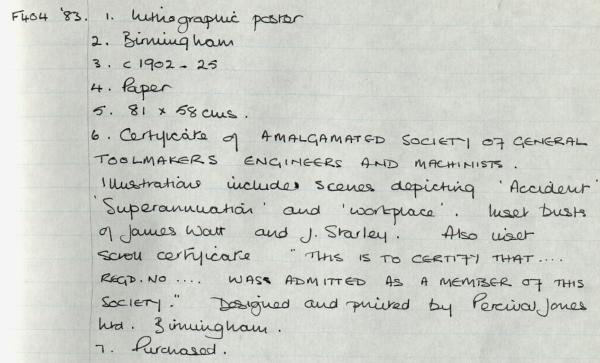 F404 '83. 1. Lithographic poster
2. Birmingham
3. c 1902 - 25
4. Paper
5. 81 x 58 cms.
6. Certificate of AMALGAMATED SOCIETY OF GENERAL
TOOLMAKERS ENGINEERS AND MACHINISTS.
Illustrations includes scenes depicting 'Accident'
'Superannuation' and 'workplace'. Inset busts
of James Watt and J. Starley. Also inset
scroll certificate "THIS IS TO CERTIFY THAT ....
REGD. NO .... WAS ADMITTED AS A MEMBER OF THIS
SOCIETY." Designed and printed by Percival Jones
Ltd. Birmingham.
7. Purchased.